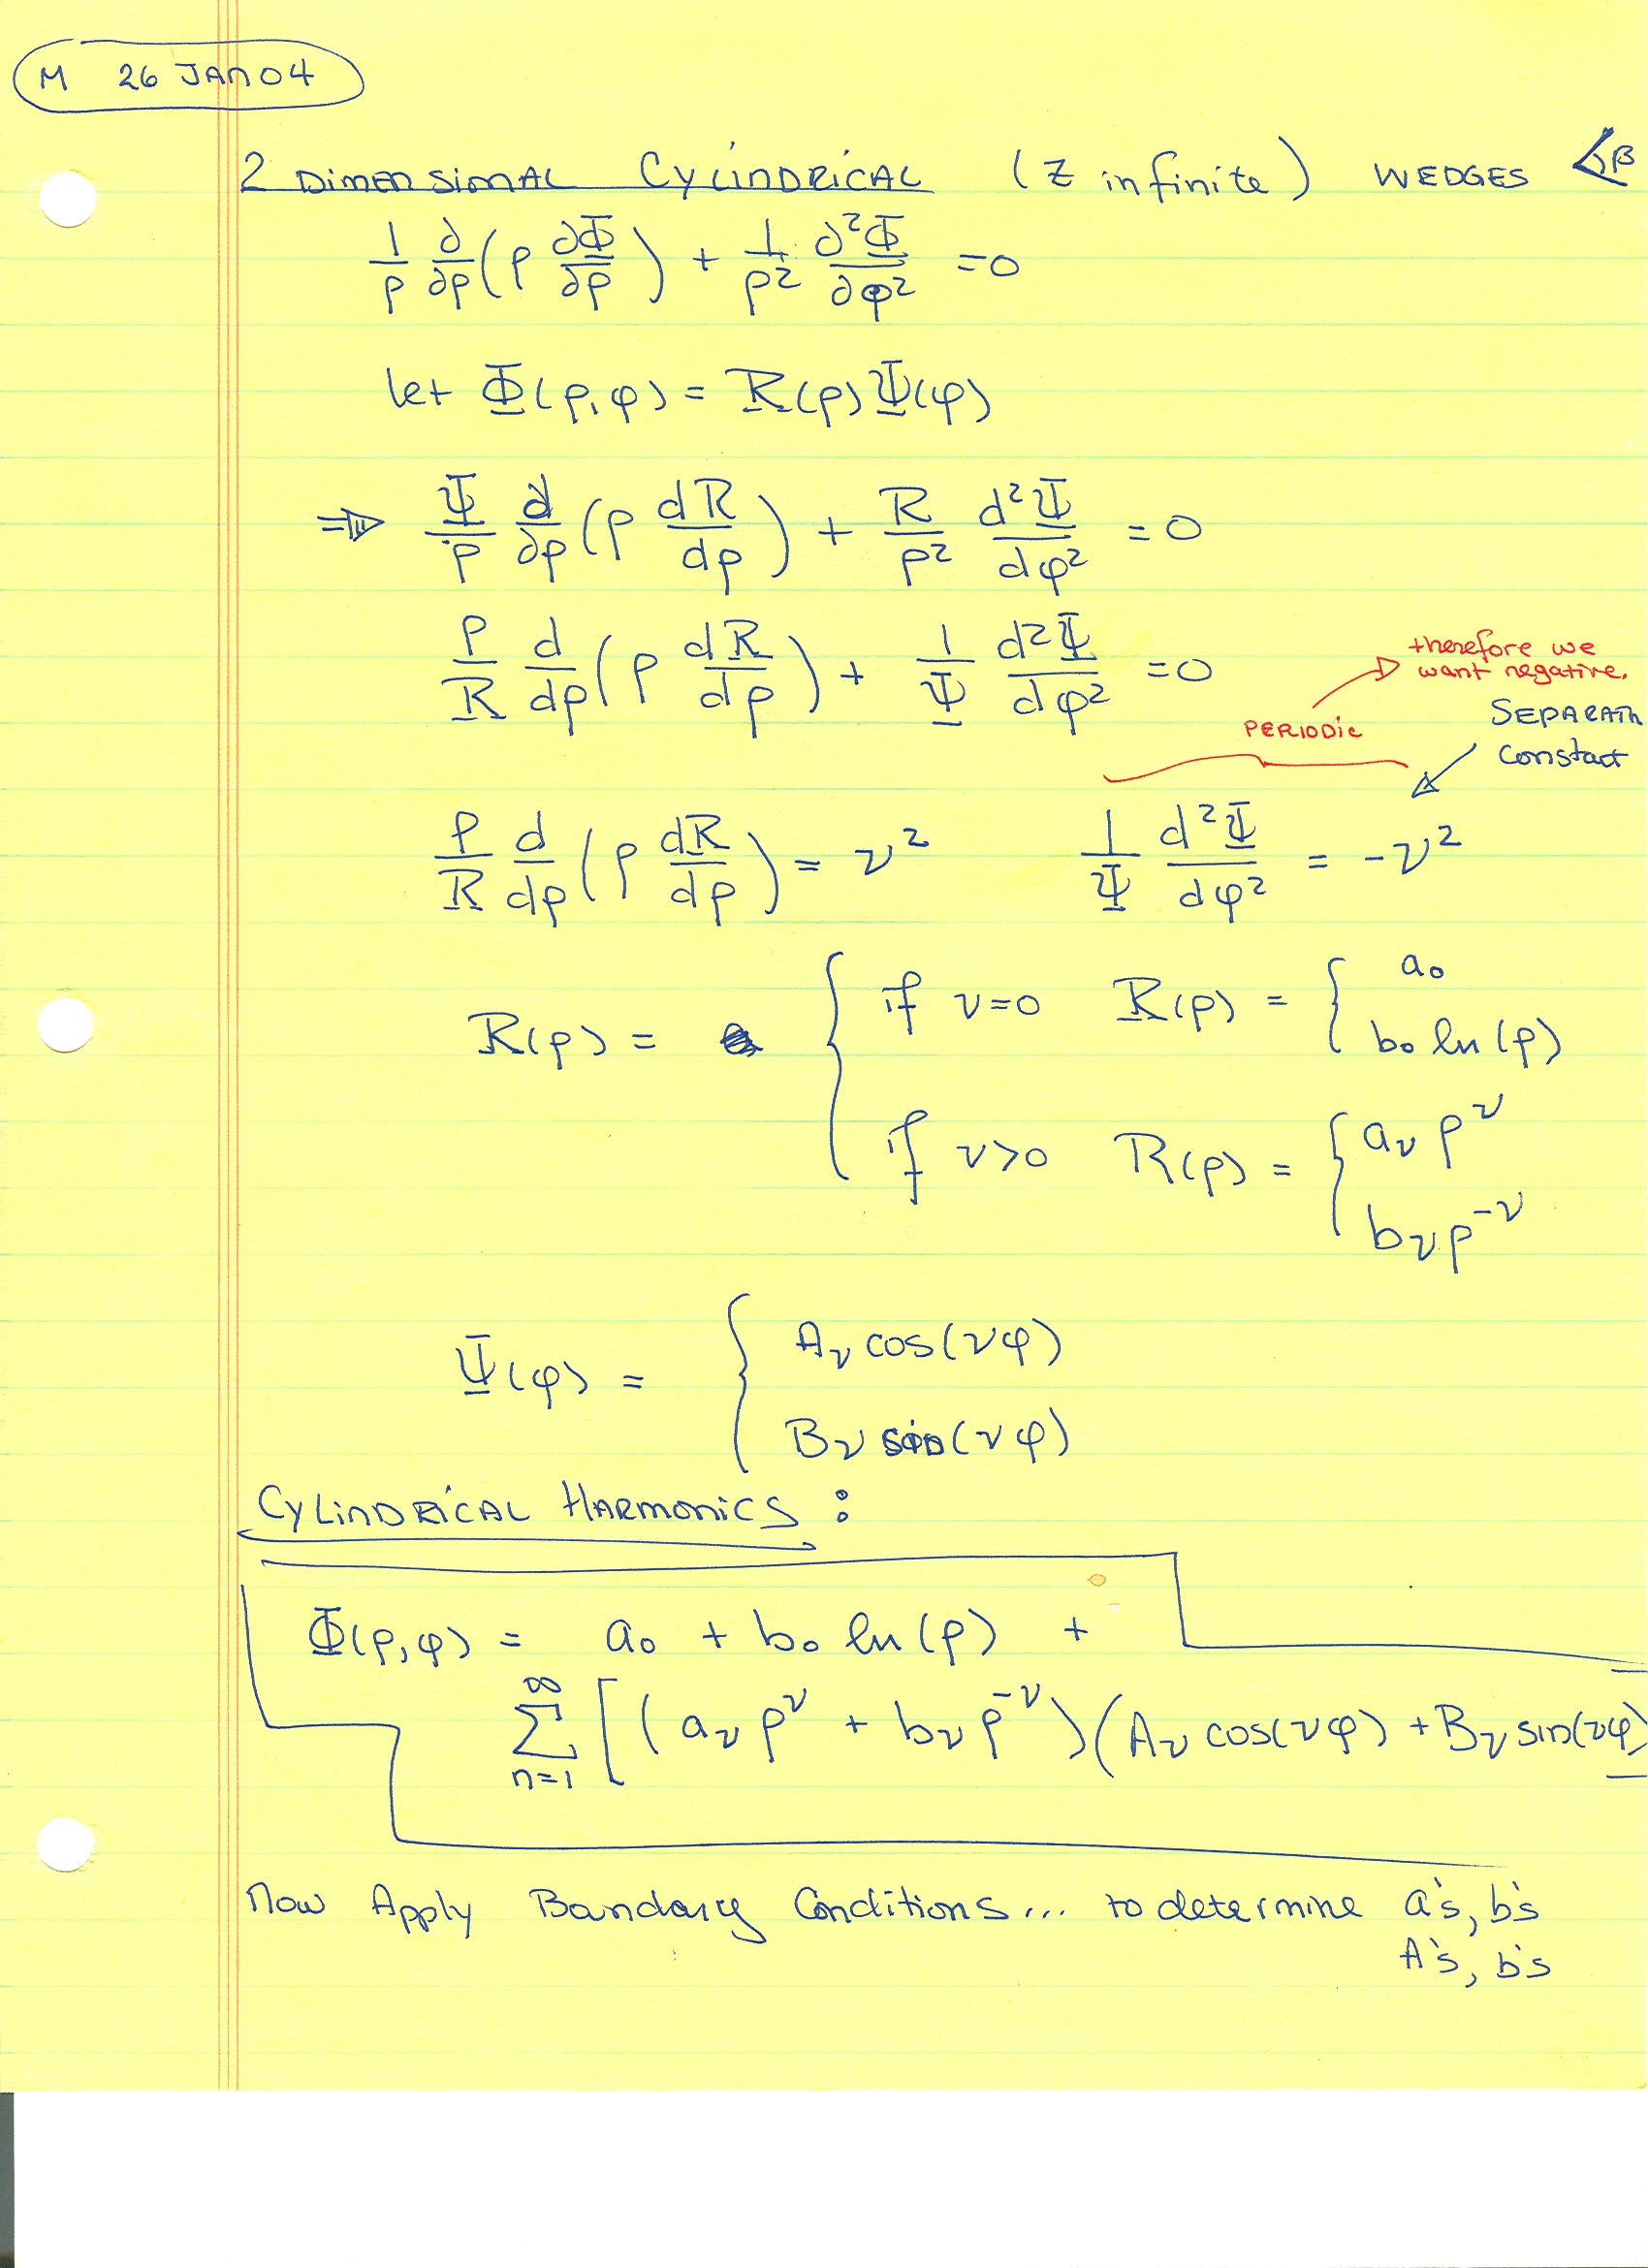 M 26 JAN 04
2 Dimensional Cylindrical (Z infinite) WEDGES β
1/ρ ∂/∂ρ(ρ ∂Φ/∂ρ) + 1/ρ² ∂²Φ/∂φ² =0
let Φ(ρ,φ) = R(ρ)Ψ(φ)
⇒ Ψ/ρ ∂/∂ρ(ρ dR/dρ) + R/ρ² d²Ψ/dφ² =0
ρ/R d/dρ(ρ dR/dρ) + 1/Ψ d²Ψ/dφ² =0
therefore we
want negative.
PERIODIC
SEPARATN
constact
ρ/R d/dρ(ρ dR/dρ) = ν² 1/Ψ d²Ψ/dφ² = -ν²
R(ρ) = { if ν=0 R(ρ) = { a₀
b₀ ln(ρ)
if ν>0 R(ρ) = { aν ρ^ν
bν ρ^-ν
Ψ(φ) = { Aν cos(νφ)
Bν sin(νφ)
Cylindrical Harmonics :
Φ(ρ,φ) = a₀ + b₀ ln(ρ) +
∞ Σ n=1 [(aν ρ^ν + bν ρ^-ν)(Aν cos(νφ) + Bν sin(νφ)
Now Apply Bandary Conditions... to determine a's, b's
A's, b's